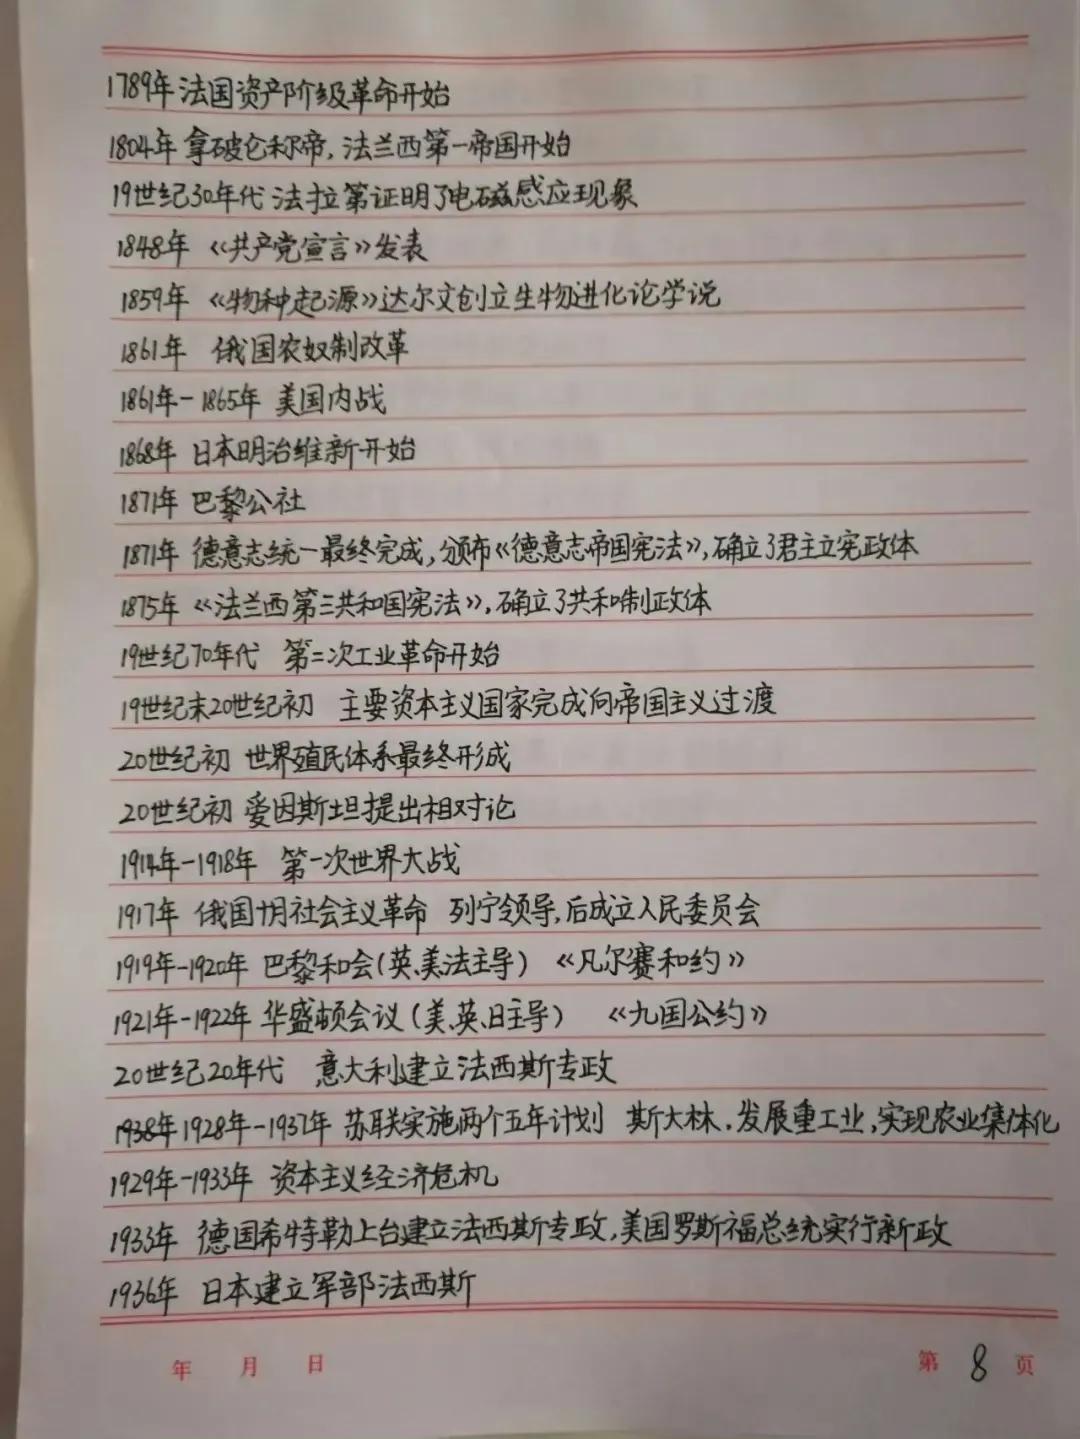 1789年 法国资产阶级革命开始
1804年 拿破仑称帝，法兰西第一帝国开始
19世纪30年代 法拉第证明了电磁感应现象
1848年 《共产党宣言》发表
1859年 《物种起源》达尔文创立生物进化论学说
1861年 俄国农奴制改革
1861年-1865年 美国内战
1868年 日本明治维新开始
1871年 巴黎公社
1871年 德意志统一最终完成，颁布《德意志帝国宪法》，确立了君主立宪政体
1875年 《法兰西第三共和国宪法》，确立了共和制政体
19世纪70年代 第二次工业革命开始
19世纪末20世纪初 主要资本主义国家完成向帝国主义过渡
20世纪初 世界殖民体系最终形成
20世纪初 爱因斯坦提出相对论
1914年-1918年 第一次世界大战
1917年 俄国十月社会主义革命 列宁领导，后成立人民委员会
1919年-1920年 巴黎和会（英、美、法主导） 《凡尔赛和约》
1921年-1922年 华盛顿会议（美、英、日主导） 《九国公约》
20世纪20年代 意大利建立法西斯专政
1938年1928年-1937年 苏联实施两个五年计划 斯大林，发展重工业，实现农业集体化
1929年-1933年 资本主义经济危机
1933年 德国希特勒上台建立法西斯专政，美国罗斯福总统实行新政
1936年 日本建立军部法西斯
年 月 日 第 8 页